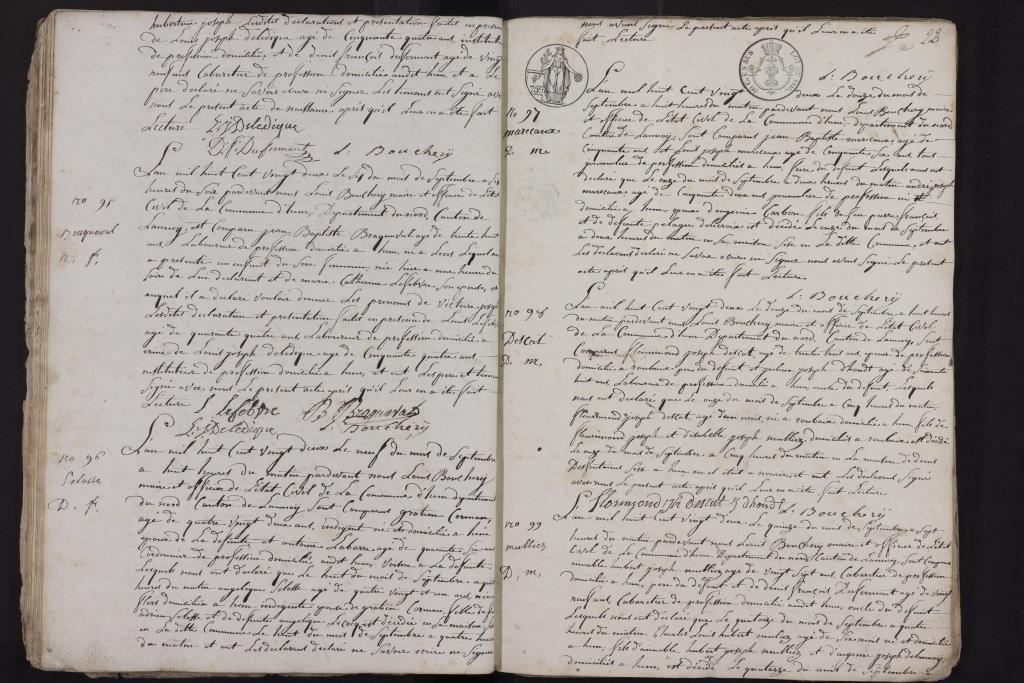 hubertine joseph Lesdites declarations et presentation faites en presence
de Louis joseph deledique age de Cinquante quatre ans instituteur
de profession domicilié et de denis françois dufermont age de Vingt
neuf ans Cabaretier de profession domicilié audit hem, et a Le
pere declaré ne Savoir ecrire ne Signer Les temoins ont Signé avec
nous Le present acte de naissance après qu'il Leur en a ete fait
Lecture L: J: Deledique
D: f: Dufermont L: Bouchery
no 95
Braquaval
n. f.
L'an mil huit Cent Vingt deux Le Six du mois de Septembre a Six
heures du Soir pardevant nous Louis Bouchery maire et officier de L'etat
Civil de La Commune d'hem, Departement du nord, Canton de
Lannoy, est Comparu jean Baptiste Braquaval age de trente huit
ans, Laboureur de profession domicilié a hem, Lequel nous
a presenté un enfant du Sexe feminin née hier a une heure du
Soir de Lui declarant et de marie Catherine Lefebvre Son epouse, et
auquel il a declaré Vouloir donner Les prenoms de Victoire joseph
Lesdites declaration et presentation faites en presence de Louis Lefebvre
age de quarante quatre ans Laboureur de profession domicilié a
et de Louis joseph deledique age de Cinquante quatre ans
instituteur de profession domicilié a hem, et ont Les pere et temoins
Signé avec nous Le present acte après qu'il Leur en a ete fait
Lecture L Lefebvre B Braquaval
L: J: Deledique L: Bouchery
no 96
Selosse
D. f.
L'an mil huit Cent Vingt deux Le neuf du mois de Septembre
a huit heures du matin pardevant nous Louis Bouchery
maire et officier de L'etat Civil de La Commune d'hem departement
du nord Canton de Lannoy Sont Comparus gratien Cormans
age de quatre Vingt deux ans, indigent né et domicilié a hem,
epoux de La defunte et antoine Labarre age de quarante Six ans
Cordonnier de profession domicilié audit hem, Voisin a La defunte
Lesquels nous ont declaré que Le huit du mois de Septembre a quatre
heures du matin angelique Selosse age de quatre Vingt et un ans, née a
flers domicilié a hem indigente epouse de gratien Cormans fille de feu
adrien Selosse et de defunte angelique Lecocq est decédée en Sa maison Sise
en La ditte Commune Le huit du mois de Septembre a quatre heures
du matin et ont Les declarans declaré ne Savoir ecrire ne Signer
nous avons Signé Le present acte après qu'il Leur en a ete
fait Lecture
22
L: Bouchery
75c
no 97
marecaux
D. m.
L'an mil huit Cent Vingt deux Le douze du mois de
Septembre a huit heures du matin pardevant nous Louis Bouchery maire
et officier de L'etat Civil de La Commune d'hem, departement du nord
Canton de Lannoy, Sont Comparus jean Baptiste marecaux age de
Cinquante ans et Louis joseph marecaux age de Cinquante Six ans tous
journalier de profession domiciliés a hem, frere du defunt Lesquels nous ont
declaré que Le onze du mois de Septembre a deux heures du matin andre joseph
marecaux age de Cinquante deux ans journalier de profession né et
domicilié a hem, epoux d'eugenie Carbon fils de feu pierre françois
et de defunte pelagie est decédé Le onze du mois de Septembre
a deux heures du matin en Sa maison Sise en La ditte Commune, et ont
Les declarans declaré ne Savoir ecrire ne Signer nous avons Signé Le present
acte après qu'il Leur en a ete fait Lecture
L: Bouchery
no 98
Descat
D. m.
L'an mil huit Cent Vingt deux Le douze du mois de Septembre a huit heures
du matin pardevant nous Louis Bouchery maire et officier de L'etat Civil
de La Commune d'hem Departement du nord, Canton de Lannoy Sont
Comparus florimond joseph descat, age de trente huit ans de profession
domicilié a roubaix pere du defunt et joseph dhondt age de Soixante
huit ans Laboureur de profession domicilié a hem, oncle du defunt Lesquels
nous ont declaré que Le onze du mois de Septembre a Cinq heures du matin
fleurimond joseph descat age d'un mois né a roubaix domicilié a hem fils de
fleurimond joseph et d'isabelle joseph mulliez domiciliés a roubaix est decédé
Le onze du mois de Septembre a Cinq heures du matin en La maison de denis
Desfontaines Sise a hem ou il etait a nourice, et ont Les declarans Signé
avec nous Le present acte après qu'il Leur en a ete fait Lecture
florimond descat dhondt L: Bouchery
no 99
mulliez
D. m.
L'an mil huit Cent Vingt deux Le quinze du mois de Septembre a Sept
heures du matin pardevant nous Louis Bouchery maire et officier de L'etat
Civil de La Commune d'hem Departement du nord Canton de Lannoy, Sont Comparus
aimable hubert joseph mulliez age de Vingt Sept ans, Cabaretier de profession
domicilié a hem, pere du defunt et denis françois Dufermont age de Vingt
neuf ans, Cabaretier de profession domicilié audit hem, oncle du defunt
Lesquels nous ont declaré que Le quatorze du mois de Septembre a quatre
heures du matin Charles Louis hubert mulliez age de Six mois né et domicilié
a hem, fils d'aimable hubert joseph mulliez et d'eugenie joseph delannoy
domiciliés a hem, est decédé Le quatorze du mois de Septembre a